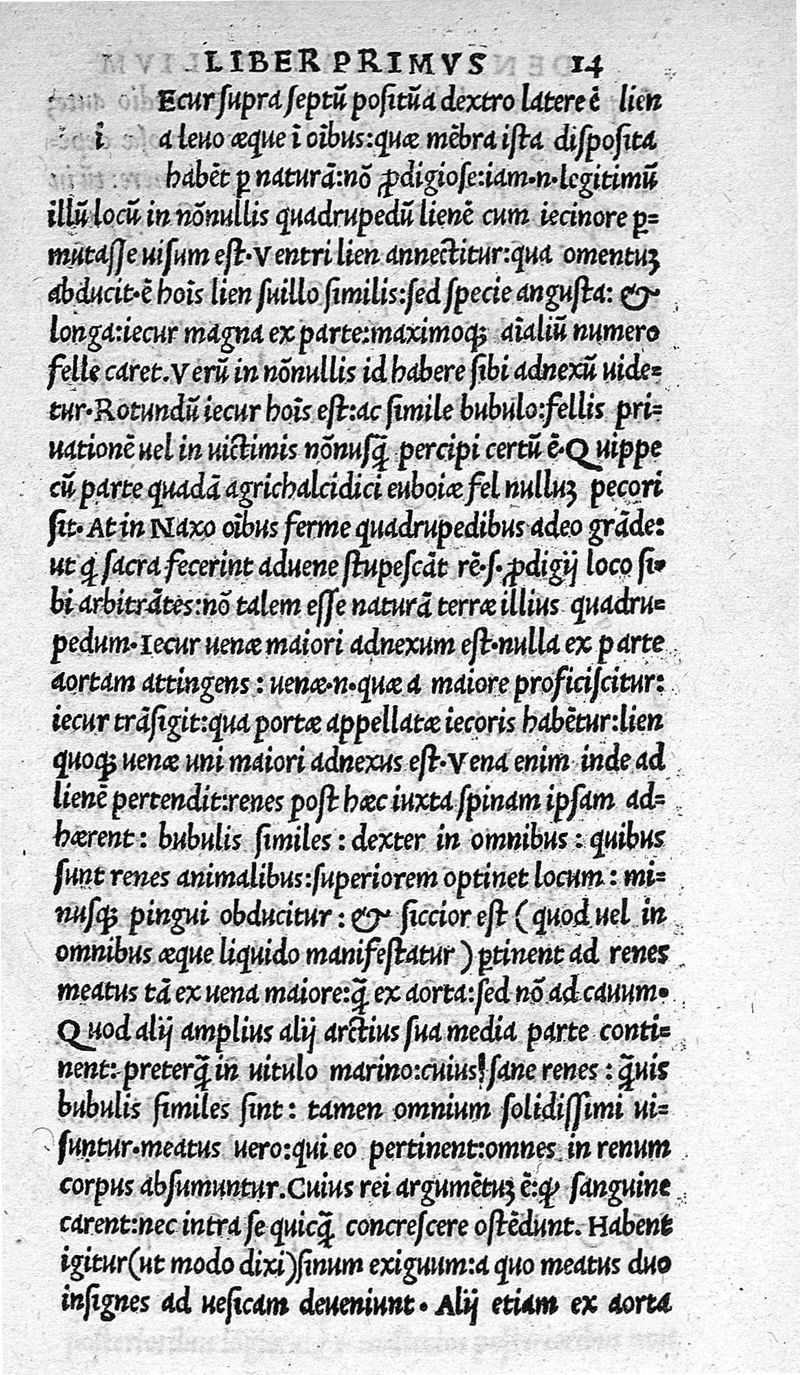 LIBER PRIMVS 14
Ecur supra septū positū a dextro latere ē lien
i a leuo æque ī oībus:quæ mēbra ista disposita
habēt ꝑ naturā:nō ꝓdigiose:iam·n·legitimū
illū locū in nōnullis quadrupedū lienē cum iecinore ꝑ=
mutasse uisum est·Ventri lien annectitur:qua omentuꝫ
abducit·ē hoīs lien suillo similis:sed specie angusta: &
longa:iecur magna ex parte:maximoqꝫ aīaliū numero
felle caret.Verū in nōnullis id habere sibi adnexū uide=
tur·Rotundū iecur hoīs est:ac simile bubulo:fellis pri=
uationē uel in uictimis nōnusq̄ percipi certū ē·Quippe
cū parte quadā agrichalcidici euboiæ fel nulluꝫ pecori
sit·At in Naxo oībus ferme quadrupedibus adeo grāde:
ut q̄ sacra fecerint aduene stupescāt rē·s·ꝓdigij loco si=
bi arbitrātes:nō talem esse naturā terræ illius quadru=
pedum·Iecur uenæ maiori adnexum est·nulla ex parte
aortam attingens : uenæ·n·quæ a maiore proficiscitur:
iecur trāsigit:qua portæ appellatæ iecoris habētur:lien
quoqꝫ uenæ uni maiori adnexus est·Vena enim inde ad
lienē pertendit:renes post hæc iuxta spinam ipsam ad=
hærent : bubulis similes : dexter in omnibus : quibus
sunt renes animalibus:superiorem optinet locum : mi=
nusqꝫ pingui obducitur : & siccior est ( quod uel in
omnibus æque liquido manifestatur ) ꝑtinent ad renes
meatus tā ex uena maiore:q̄ ex aorta:sed nō ad cauum·
Quod alij amplius alij arctius sua media parte conti=
nent:preterq̄ in uitulo marino:cuius sane renes : q̄uis
bubulis similes sint : tamen omnium solidissimi ui=
suntur·meatus uero:qui eo pertinent:omnes in renum
corpus absumuntur.Cuius rei argumētuꝫ ē:ꝙ sanguine
carent:nec intra se quicq̄ concrescere ostēdunt. Habent
igitur(ut modo dixi)sinum exiguum:a quo meatus duo
insignes ad uesicam deueniunt· Alij etiam ex aorta